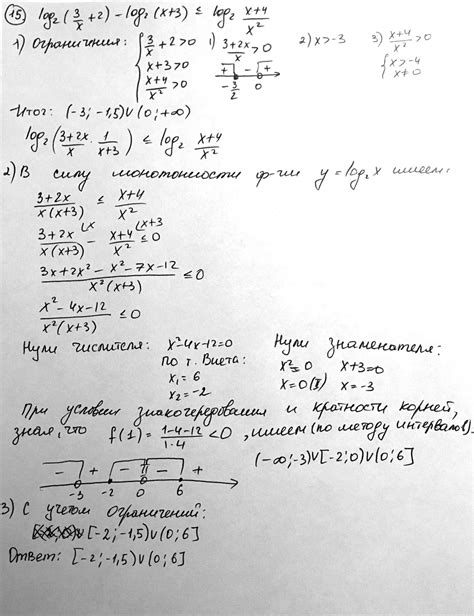 15 log₂(3/x + 2) - log₂(x+3) ≤ log₂ (x+4)/x²
1) Ограничения: { 3/x + 2 > 0; x+3 > 0; (x+4)/x² > 0 1) (3+2x)/x > 0 2) x > -3 3) (x+4)/x² > 0 { x > -4; x ≠ 0
+ - + -3/2 0
Итог: (-3; -1,5) ∪ (0; +∞)
log₂((3+2x)/x · 1/(x+3)) ≤ log₂ (x+4)/x²
2) В силу монотонности ф-ии y = log₂x имеем:
(3+2x)/(x(x+3)) ≤ (x+4)/x²
(3+2x)/(x(x+3)) (x - (x+4)/x² (x+3 ≤ 0
(3x+2x²-x²-7x-12)/(x²(x+3)) ≤ 0
(x²-4x-12)/(x²(x+3)) ≤ 0
Нули числителя: x²-4x-12=0 Нули знаменателя:
по т. Виета: x²=0 x+3=0
x₁=6 x=0(II) x=-3
x₂=-2
При условии знакочередования и кратности корней,
зная, что f(1) = (1-4-12)/(1·4) < 0, имеем (по методу интервалов).
- + - II - + (-∞;-3)∪[-2;0)∪(0;6]
-3 -2 0 6
3) С учетом ограничений:
∪[-2;-1,5)∪(0;6]
Ответ: [-2;-1,5)∪(0;6]